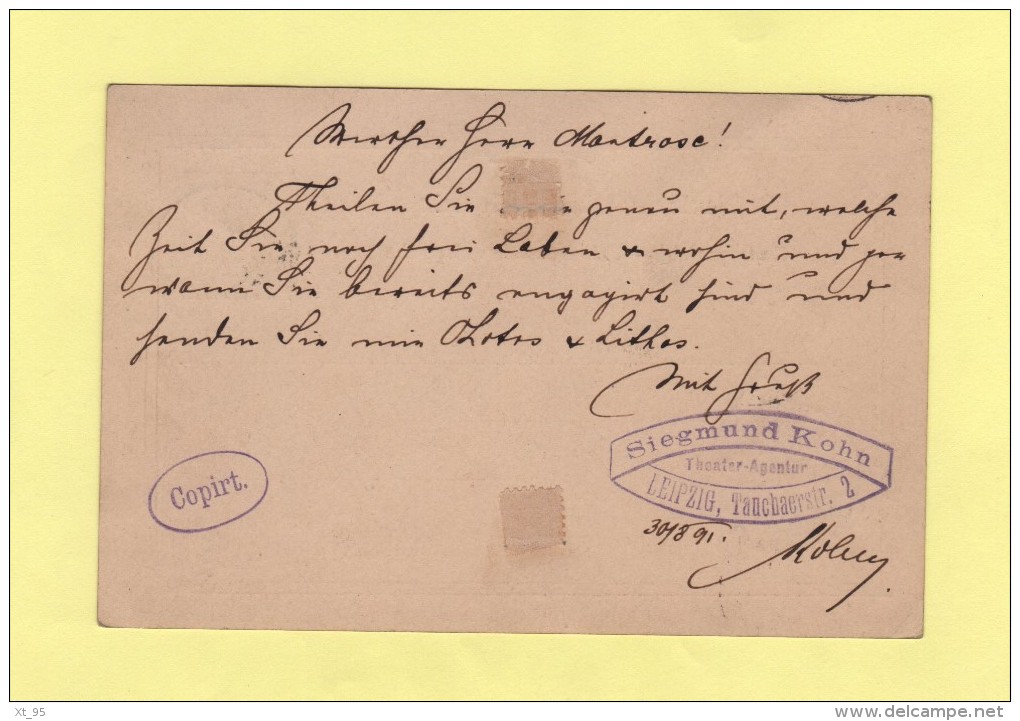 Werther Herr Montrose!
Theilen Sie genau mit, welche
Zeit Sie noch frei haben & wohin und
wann Sie bereits engagirt sind und
senden Sie mir Fotos & Lithos.
Mit Gruß
Siegmund Kohn
Theater-Agentur
LEIPZIG, Tauchaerstr. 2
Copirt.
30/8 91.
Kohn
Xt_95
www.delcampe.net